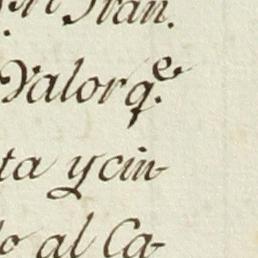 Fran.
Valorq.e
ta y cin-
do al Ca-